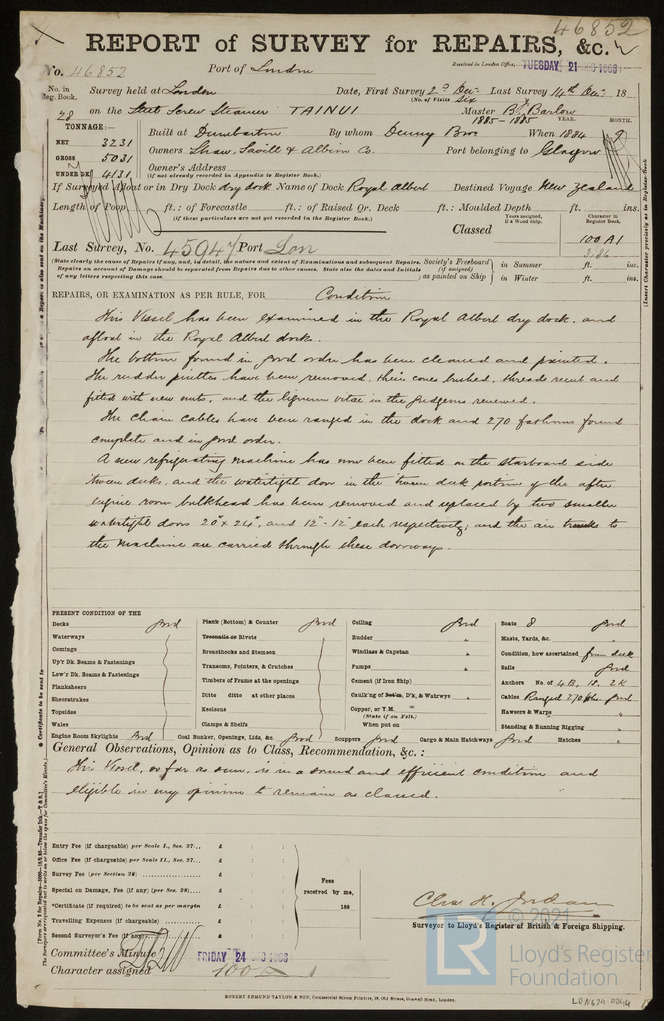 46852
REPORT of SURVEY for REPAIRS, &c.
No. 46852 Port of London Received in London Office, TUESDAY 21 DEC 1886
No. in Reg. Book. Survey held at London Date, First Survey 2d Dec: Last Survey 14th Dec: 18
(No. of Visits Six
28 on the Steel Screw Steamer TAINUI Master B. J. Barlow
1885-1885 YEAR. MONTH.
TONNAGE:— Built at Dumbarton By whom Denny Bros When 1884 9
NET 3231 Owners Shaw, Savill & Albion Co. Port belonging to Glasgow
GROSS 5031 Owner's Address
UNDER DK 4131 (If not already recorded in Appendix to Register Book.)
If Surveyed Afloat or in Dry Dock dry dock Name of Dock Royal Albert Destined Voyage New Zealand
Length of Poop ft.: of Forecastle ft.: of Raised Qr. Deck ft.: Moulded Depth ft. ins.
(If these particulars are not yet recorded in the Register Book.)
Years assigned, if a Wood Ship. Character in Register Book.
Classed 100 A1
3.86
Last Survey, No. 45947 Port Lon
(State clearly the cause of Repairs if any, and, in detail, the nature and extent of Examinations and subsequent Repairs. Society's Freeboard in Summer ft. ins.
Repairs on account of Damage should be separated from Repairs due to other causes. State also the dates and Initials (if assigned)
of any letters respecting this case.) as painted on Ship in Winter ft. ins.
REPAIRS, OR EXAMINATION AS PER RULE, FOR Condition
This Vessel has been examined in the Royal Albert dry dock, and
afloat in the Royal Albert dock.
The bottom found in good order has been cleaned and painted.
The rudder pintles have been removed, their cones bushed, threads recut and
fitted with new nuts, and the lignum vitae in the gudgeons renewed.
The chain cables have been ranged in the dock and 270 fathoms found
complete and in good order.
A new refrigerating machine has now been fitted on the starboard side
tween decks, and the watertight door in the tween deck portion of the after
engine room bulkhead has been removed and replaced by two smaller
watertight doors 20" x 24", and 12" - 12" each respectively; and the air trunks to
the machine are carried through these doorways.
PRESENT CONDITION OF THE
Decks good
Waterways
Comings
Up'r Dk. Beams & Fastenings
Low'r Dk. Beams & Fastenings
Planksheers
Sheerstrakes
Topsides
Wales
Engine Room Skylights Good
Plank (Bottom) & Counter good
Treenails or Rivots
Breasthooks and Stemson
Transoms, Pointers, & Crutches
Timbers of Frame at the openings
Ditto ditto at other places
Keelsons
Clamps & Shelfs
Coal Bunker, Openings, Lids, &c. Good
Ceiling good
Rudder "
Windlass & Capstan "
Pumps "
Cement (if Iron Ship)
Caulk'ng of Bot'm, D'k, & Watrwys "
Copper, or Y.M.
(State if on Felt.)
When put on
Scuppers good
Cargo & Main Hatchways Good
Boats 8 good
Masts, Yards, &c. "
Condition, how ascertained from deck
Sails good
Anchors No. of 4 B, 1 S, 2 K
Cables Ranged 270 fths good
Hawsers & Warps "
Standing & Running Rigging "
Hatches "
General Observations, Opinion as to Class, Recommendation, &c. :
This Vessel, as far as seen, is in a sound and efficient condition and
eligible in my opinion to remain as classed.
Entry Fee (if chargeable) per Scale I., Sec. 27... £
Office Fee (if chargeable) per Scale II., Sec. 27... £
Survey Fee (per Section 28) £
Special on Damage, Fee (if any) (per Sec. 28).... £
*Certificate (if required) to be sent as per margin £
Travelling Expenses (if chargeable) £
Second Surveyor's Fee (if any) £
Fees received by me,
188
Chas H. Jordan
Surveyor to Lloyd's Register of British & Foreign Shipping.
Committee's Minute FRIDAY 24 DEC 1886
Character assigned 100 A
ROBERT EDMUND TAYLOR & SON, Commercial Steam Printers, 19, Old Street, Goswell Road, London.
© 2021
LR
Lloyd's Register
Foundation
LON674-0064